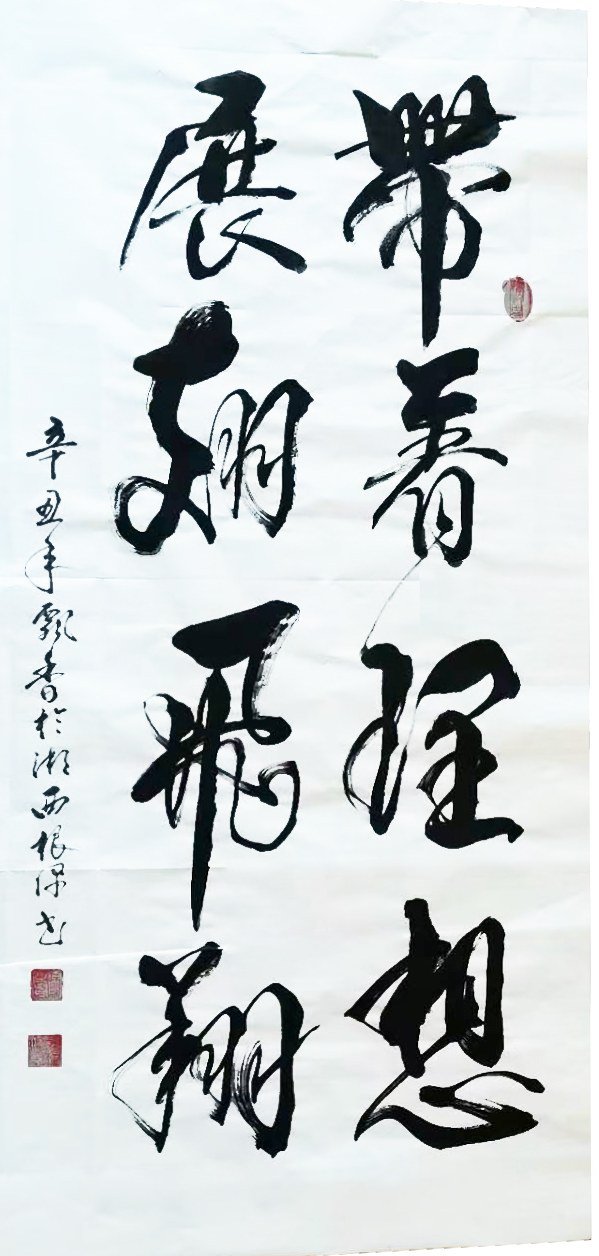 帶着理想
展翅飛翔
辛丑年飄香於湘西根保书